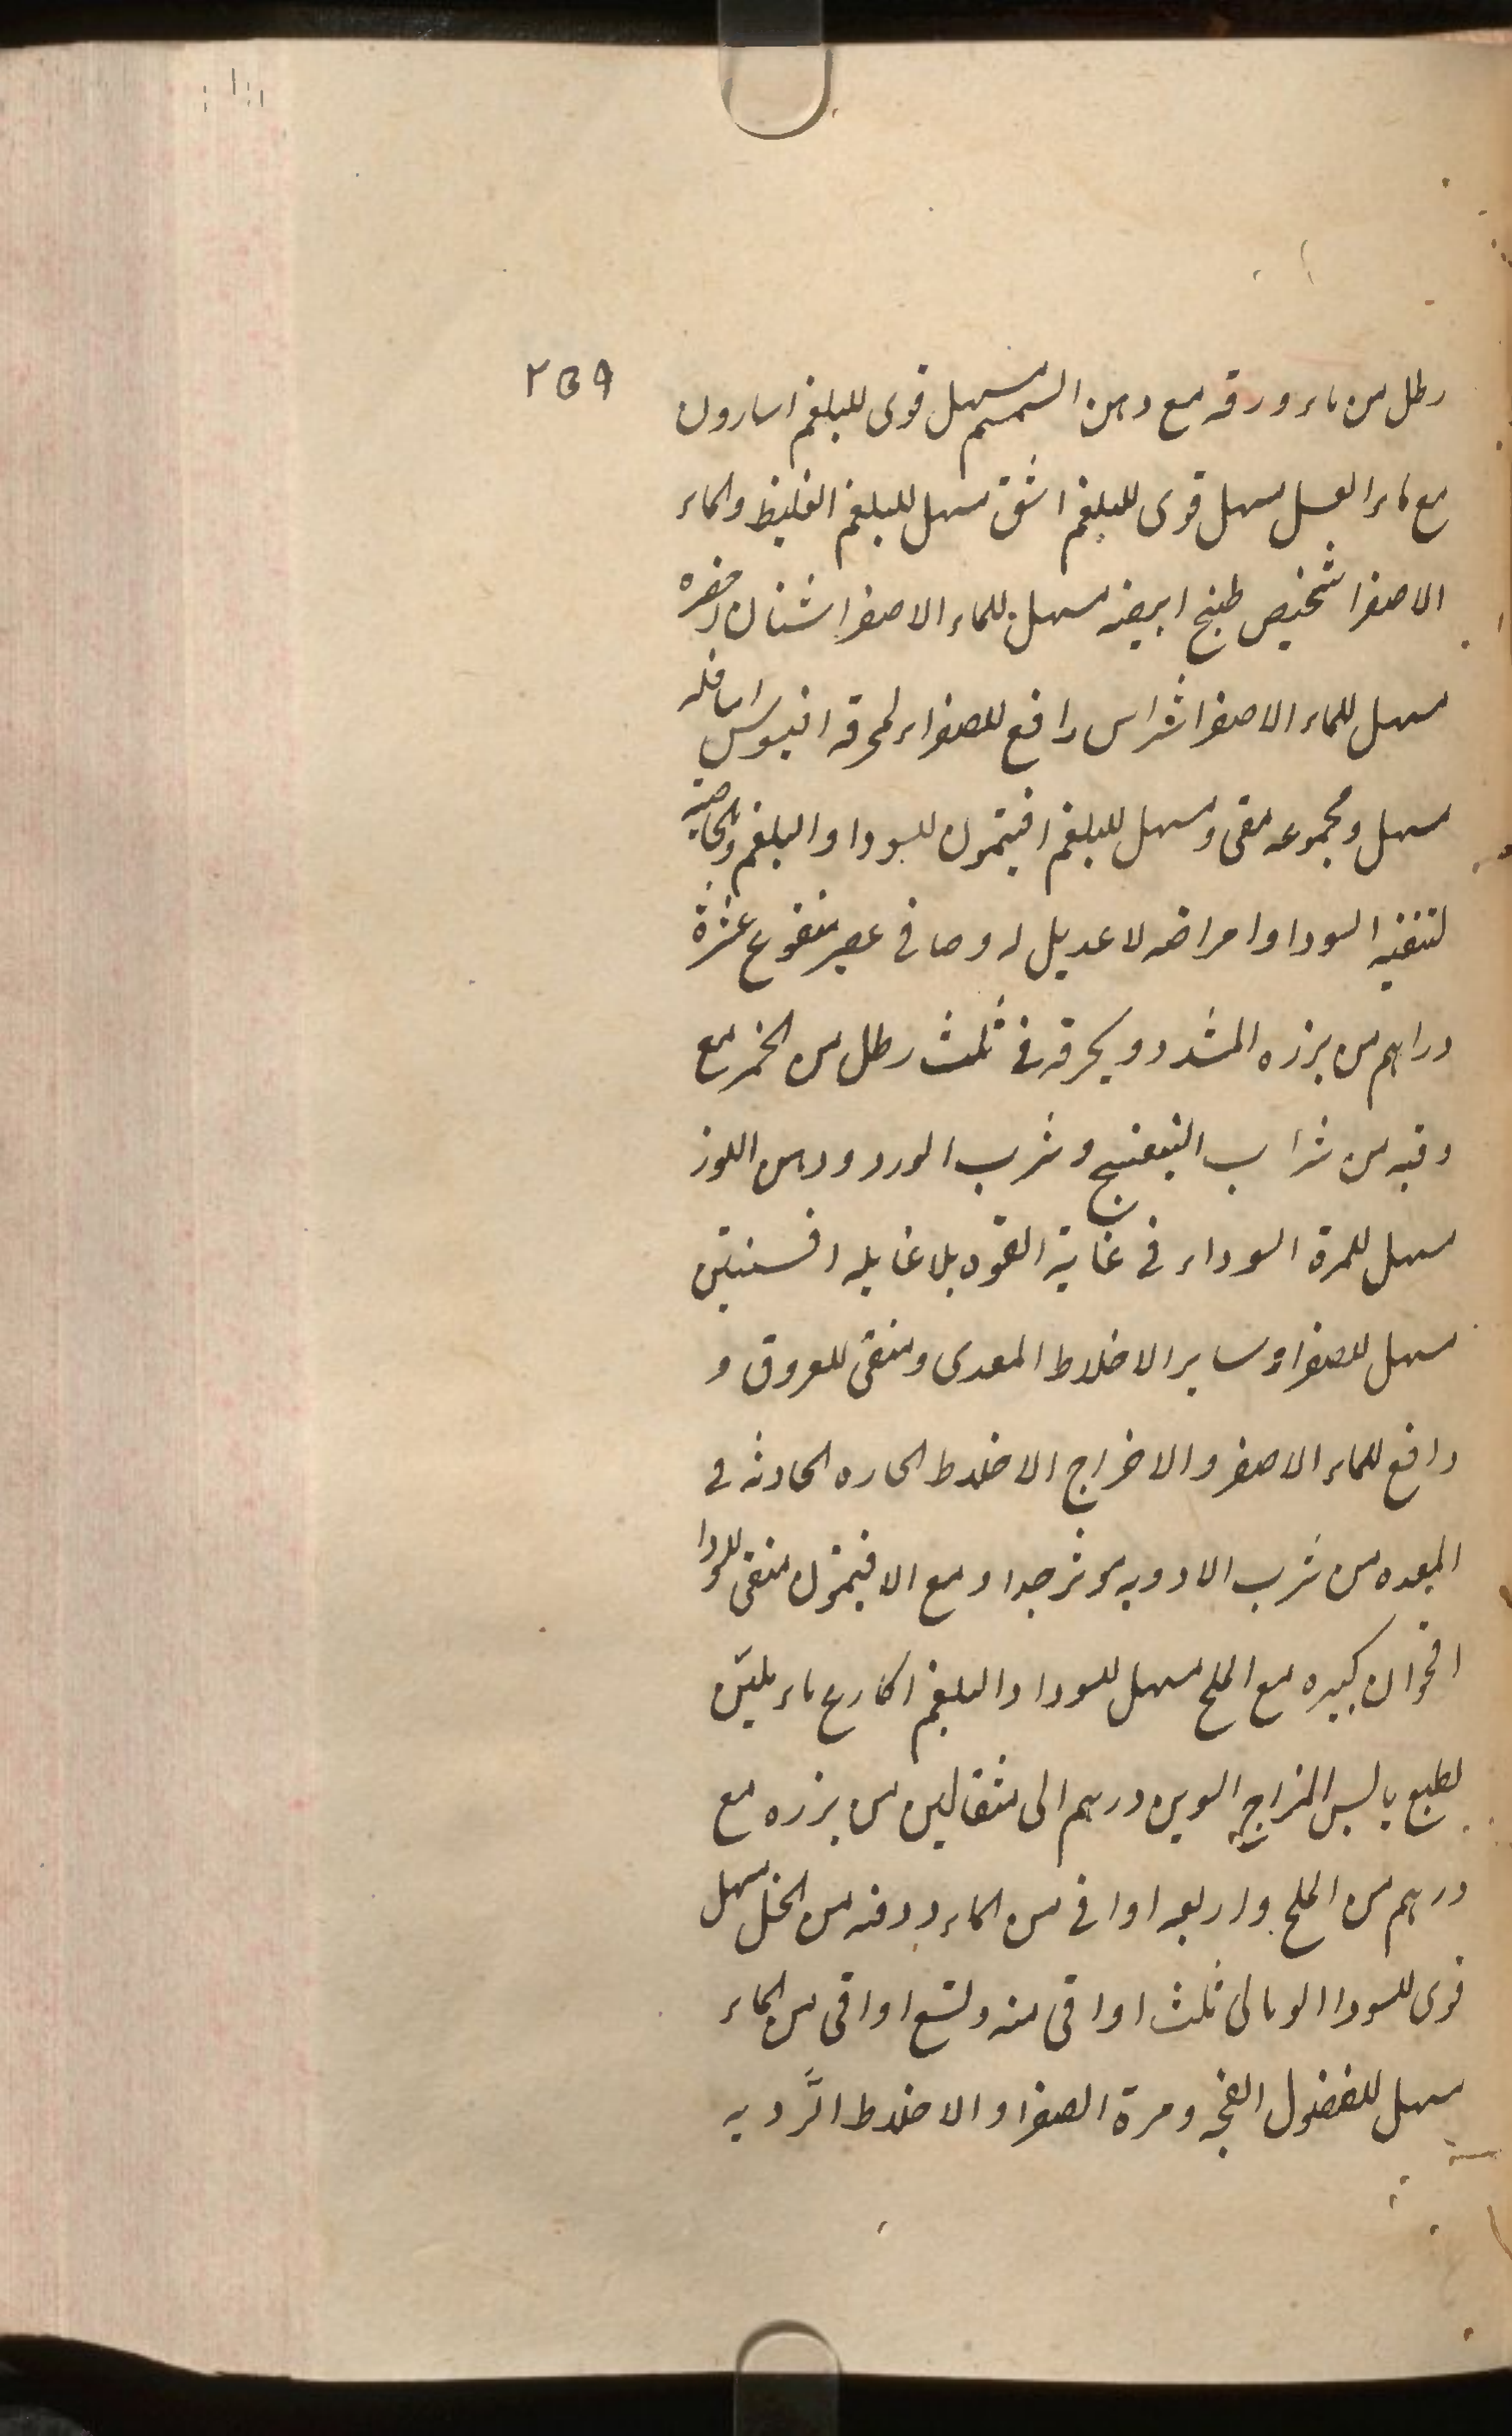 ٢٥٩
رطل من ماء ورقه مع دهن السمسم مسهل قوى للبلغم اسارون
مع ماء العسل مسهل قوى للبلغم اشق مسهل للبلغم الغليظ والماء
الاصفر اشخيص طبخ ابيضه مسهل للماء الاصفر اشنان اخضره
مسهل للماء الاصفر اشراس دافع للصفراء لمحرقه افيوس اسافله
مسهل ومجموعه مقى ومسهل للبلغم افيتمون للسودا والبلغم وبالخاصيه
لتنقيه السودا وامراضه لا عديل له وصافى عصير منقوع عشرة
دراهم من بزره المشدد و بحرقه فى ثلث رطل من الخمر مع
وقيه من شراب البنفسج وشرب الورد ودهن اللوز
مسهل للمرة السوداء فى غاية القوه بلا غايله افسنتين
مسهل للصفرا وساير الاخلاط المعدى ومنقى للعروق و
دافع للماء الاصفر والاخراج الاخلاط الحاره الحادثه فى
المعده من شرب الادويه موثر جدا ومع الافيتمون منقى للسودا
اقحوان كبيره مع الملح مسهل للسودا والبلغم اكارع ماء ملين
لطبع يابس المزاج الوين درهم الى مثقالين من بزره مع
درهم من الملح واربعه اواقى من الماء ووقيه من الخل مسهل
قوى للسودا الومالى ثلث اواقى منه وتسع اواقى من الماء
مسهل للفضول الفجه ومرة الصفرا والاخلاط الرديه